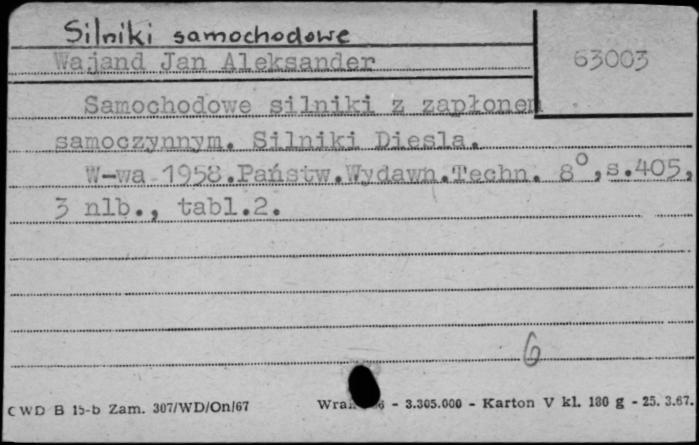 Silniki samochodowe
Wajand Jan Aleksander
63003
Samochodowe silniki z zapłonem
samoczynnym. Silniki Diesla.
W-wa 1958.Państw.Wydawn.Techn. 8°,s.405,
3 nlb., tabl.2.
6
CWD B 15-b Zam. 307/WD/On/67 - 3.305.000 - Karton V kl. 180 g - 25. 3.67.